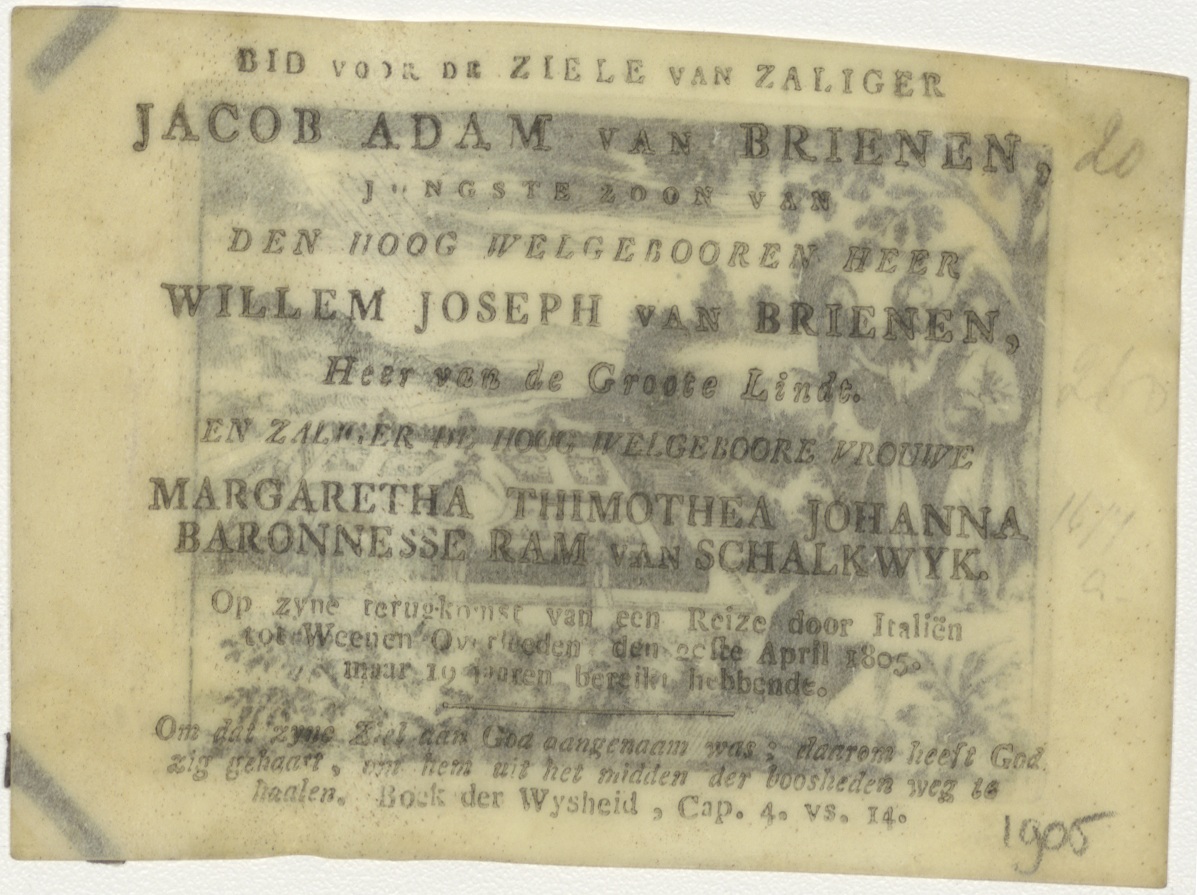 BID VOOR DE ZIELE VAN ZALIGER
JACOB ADAM VAN BRIENEN,
JUNGSTE ZOON VAN
DEN HOOG WELGEBOOREN HEER
WILLEM JOSEPH VAN BRIENEN,
Heer van de Groote Lindt.
EN ZALIGER DE HOOG WELGEBOORE VROUWE
MARGARETHA THIMOTHEA JOHANNA
BARONNESSE RAM VAN SCHALKWYK.
Op zyne terugkomst van een Reize door Italiën
tot Weenen Overleeden den April 1805.
maar 19 jaaren bereikt hebbende.
Om dat zyne Ziel aan God aangenaam was; daarom heeft God
zig gehaast, om hem uit het midden der boosheden weg te
haalen. Boek der Wysheid, Cap. 4. vs. 14.
20
1905